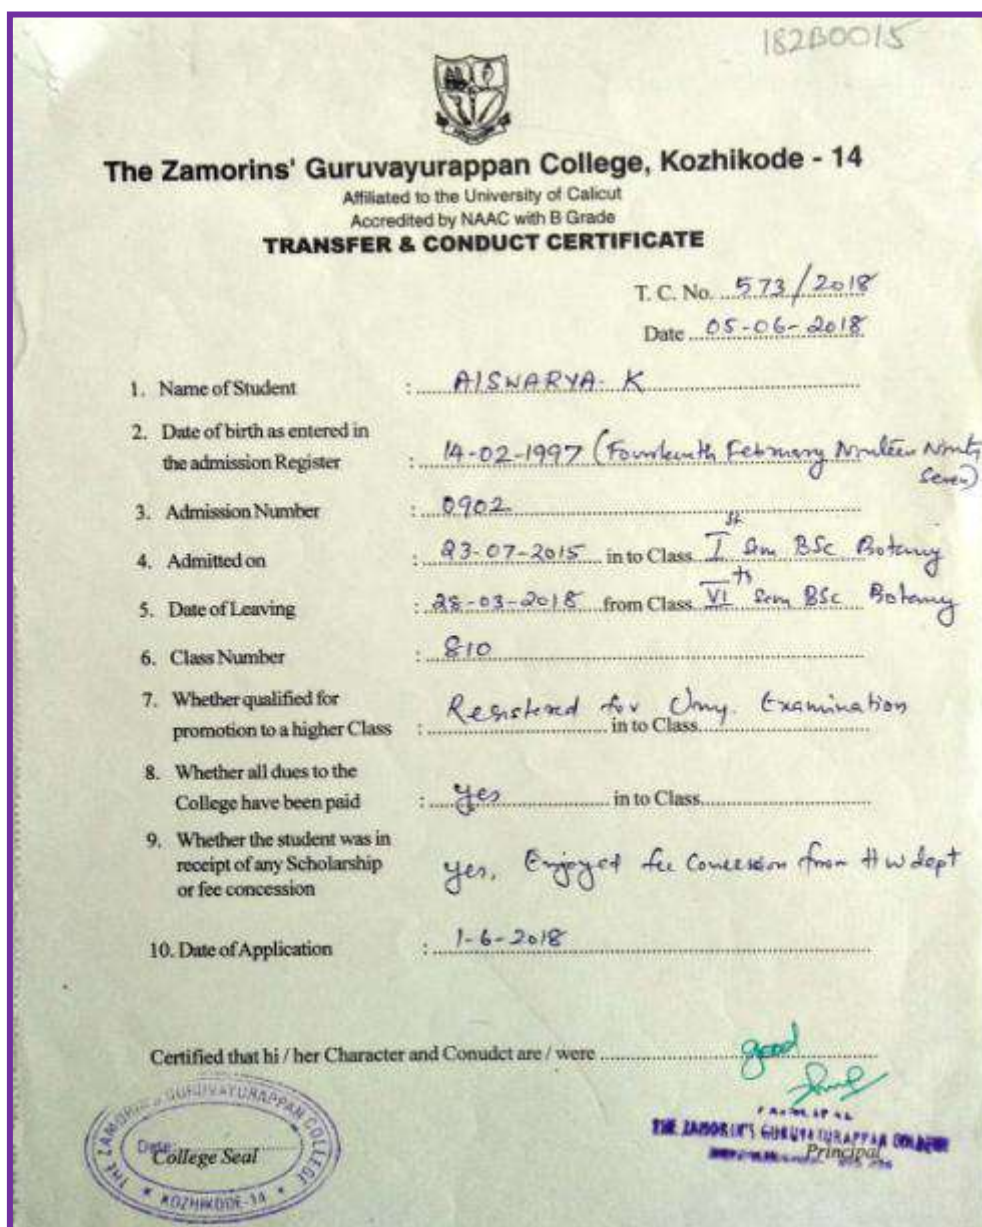 182B0015
The Zamorins' Guruvayurappan College, Kozhikode - 14
Affiliated to the University of Calicut
Accredited by NAAC with B Grade
TRANSFER & CONDUCT CERTIFICATE
T. C. No. 573/2018
Date 05-06-2018
1. Name of Student : AISWARYA. K
2. Date of birth as entered in
the admission Register : 14-02-1997 (Fourteenth February Ninteen Ninty
Seven)
3. Admission Number : 0902
4. Admitted on : 23-07-2015 in to Class I st Sem BSc Botany
5. Date of Leaving : 28-03-2018 from Class VI th Sem BSc Botany
6. Class Number : 810
7. Whether qualified for
promotion to a higher Class : Registered for Uny. Examination in to Class
8. Whether all dues to the
College have been paid : yes in to Class
9. Whether the student was in
receipt of any Scholarship
or fee concession yes, Enjoyed fee Concession from HW dept
10. Date of Application : 1-6-2018
Certified that hi / her Character and Conudct are / were good
PRINCIPAL
THE ZAMORIN'S GURUVAYURAPPAN COLLEGE
Principal
THE ZAMORIN'S GURUVAYURAPPAN COLLEGE
Date:
College Seal
KOZHIKODE-14